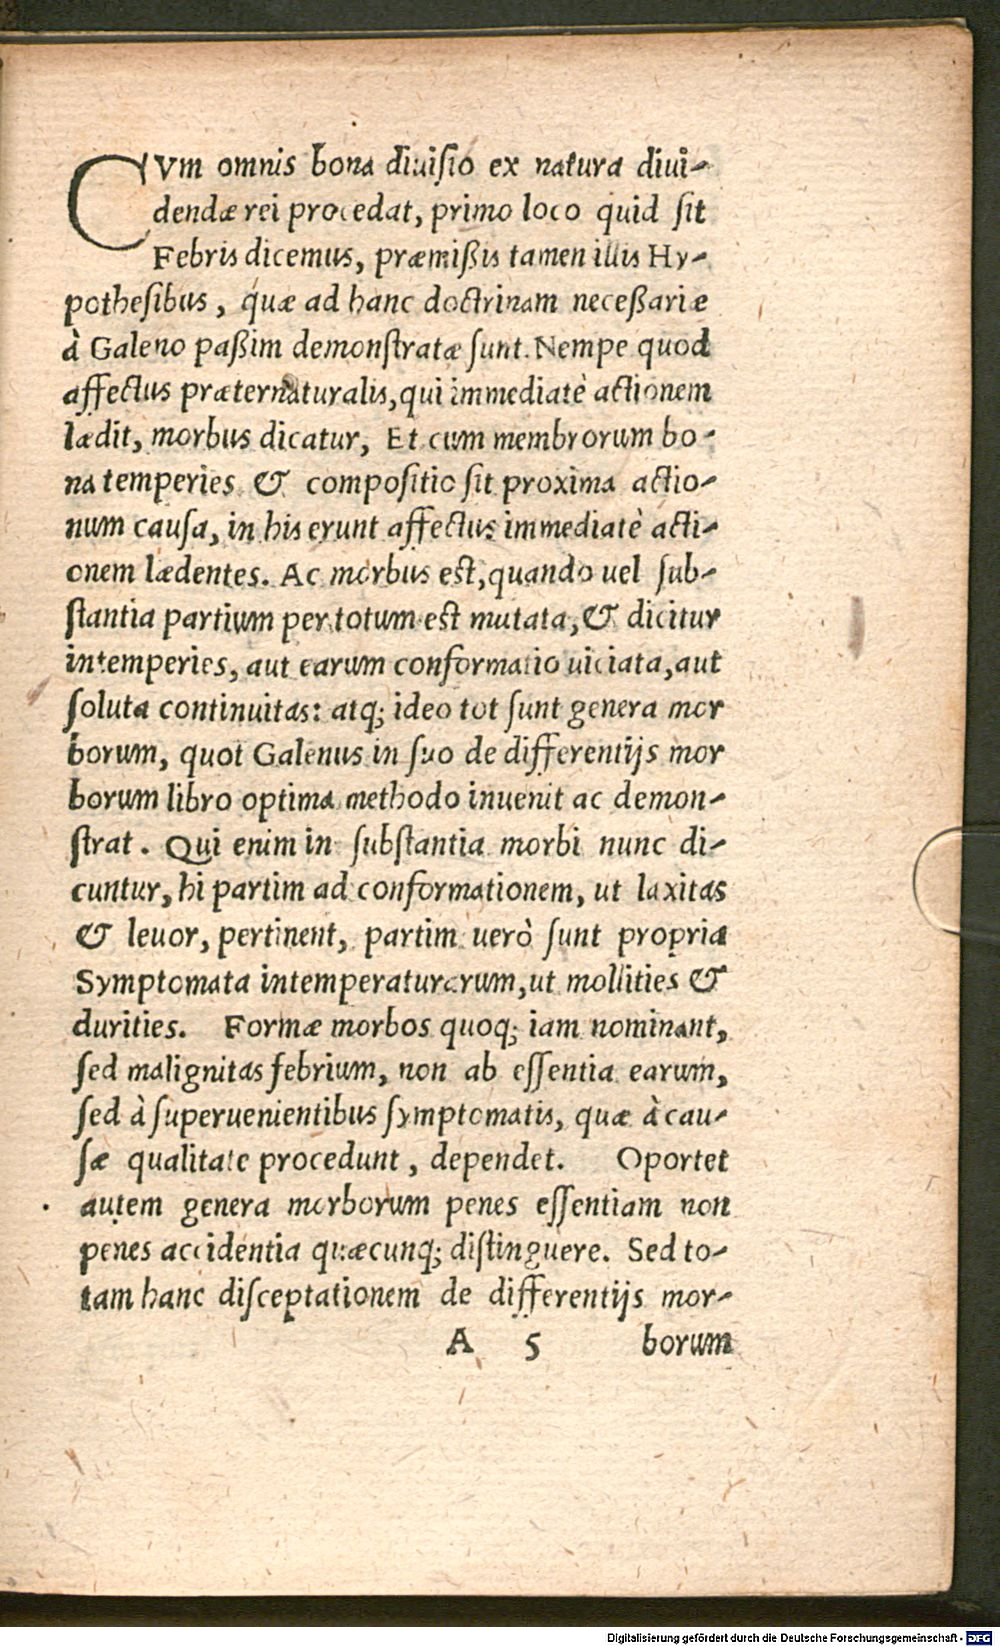 CVm omnis bona diuisio ex natura diui-
dendæ rei procedat, primo loco quid sit
Febris dicemus, præmißis tamen illis Hy-
pothesibus, quæ ad hanc doctrinam neceßariæ
à Galeno paßim demonstratæ sunt. Nempe quod
affectus præternaturalis, qui immediatè actionem
lædit, morbus dicatur, Et cum membrorum bo-
na temperies & compositio sit proxima actio-
num causa, in his erunt affectus immediatè acti-
onem lædentes. Ac morbus est, quando uel sub-
stantia partium per totum est mutata, & dicitur
intemperies, aut earum conformatio uiciata, aut
soluta continuitas: atq; ideo tot sunt genera mor
borum, quot Galenus in suo de differentijs mor
borum libro optima methodo inuenit ac demon-
strat. Qui enim in substantia morbi nunc di-
cuntur, hi partim ad conformationem, ut laxitas
& leuor, pertinent, partim uerò sunt propria
Symptomata intemperaturarum, ut mollities &
durities. Formæ morbos quoq; iam nominant,
sed malignitas febrium, non ab essentia earum,
sed à superuenientibus symptomatis, quæ à cau-
sæ qualitate procedunt, dependet. Oportet
autem genera morborum penes essentiam non
penes accidentia quæcunq; distinguere. Sed to-
tam hanc disceptationem de differentijs mor-
A 5 borum
Digitalisierung gefördert durch die Deutsche Forschungsgemeinschaft - DFG